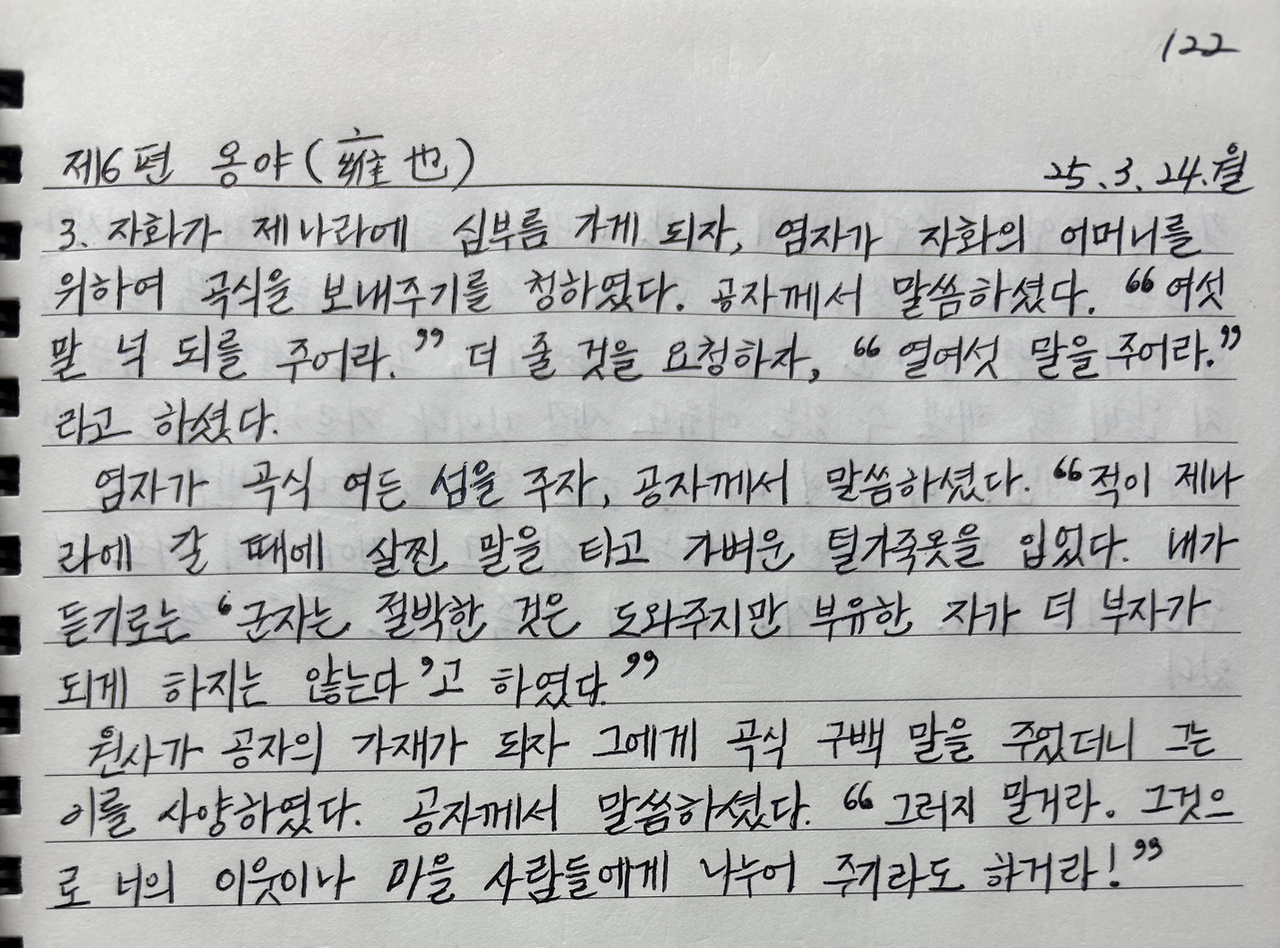 122
제6편 옹야(雍也)
25.3.24.월
3. 자화가 제나라에 심부름 가게 되자, 염자가 자화의 어머니를
위하여 곡식을 보내주기를 청하였다. 공자께서 말씀하셨다. “여섯
말 넉 되를 주어라.” 더 줄 것을 요청하자, “열여섯 말을 주어라.”
라고 하셨다.
염자가 곡식 여든 섬을 주자, 공자께서 말씀하셨다. “적이 제나
라에 갈 때에 살찐 말을 타고 가벼운 털가죽옷을 입었다. 내가
듣기로는 ‘군자는 절박한 것은 도와주지만 부유한 자가 더 부자가
되게 하지는 않는다’고 하였다.”
원사가 공자의 가재가 되자 그에게 곡식 구백 말을 주었더니 그는
이를 사양하였다. 공자께서 말씀하셨다. “그러지 말거라. 그것으
로 너의 이웃이나 마을 사람들에게 나누어 주기라도 하거라!”